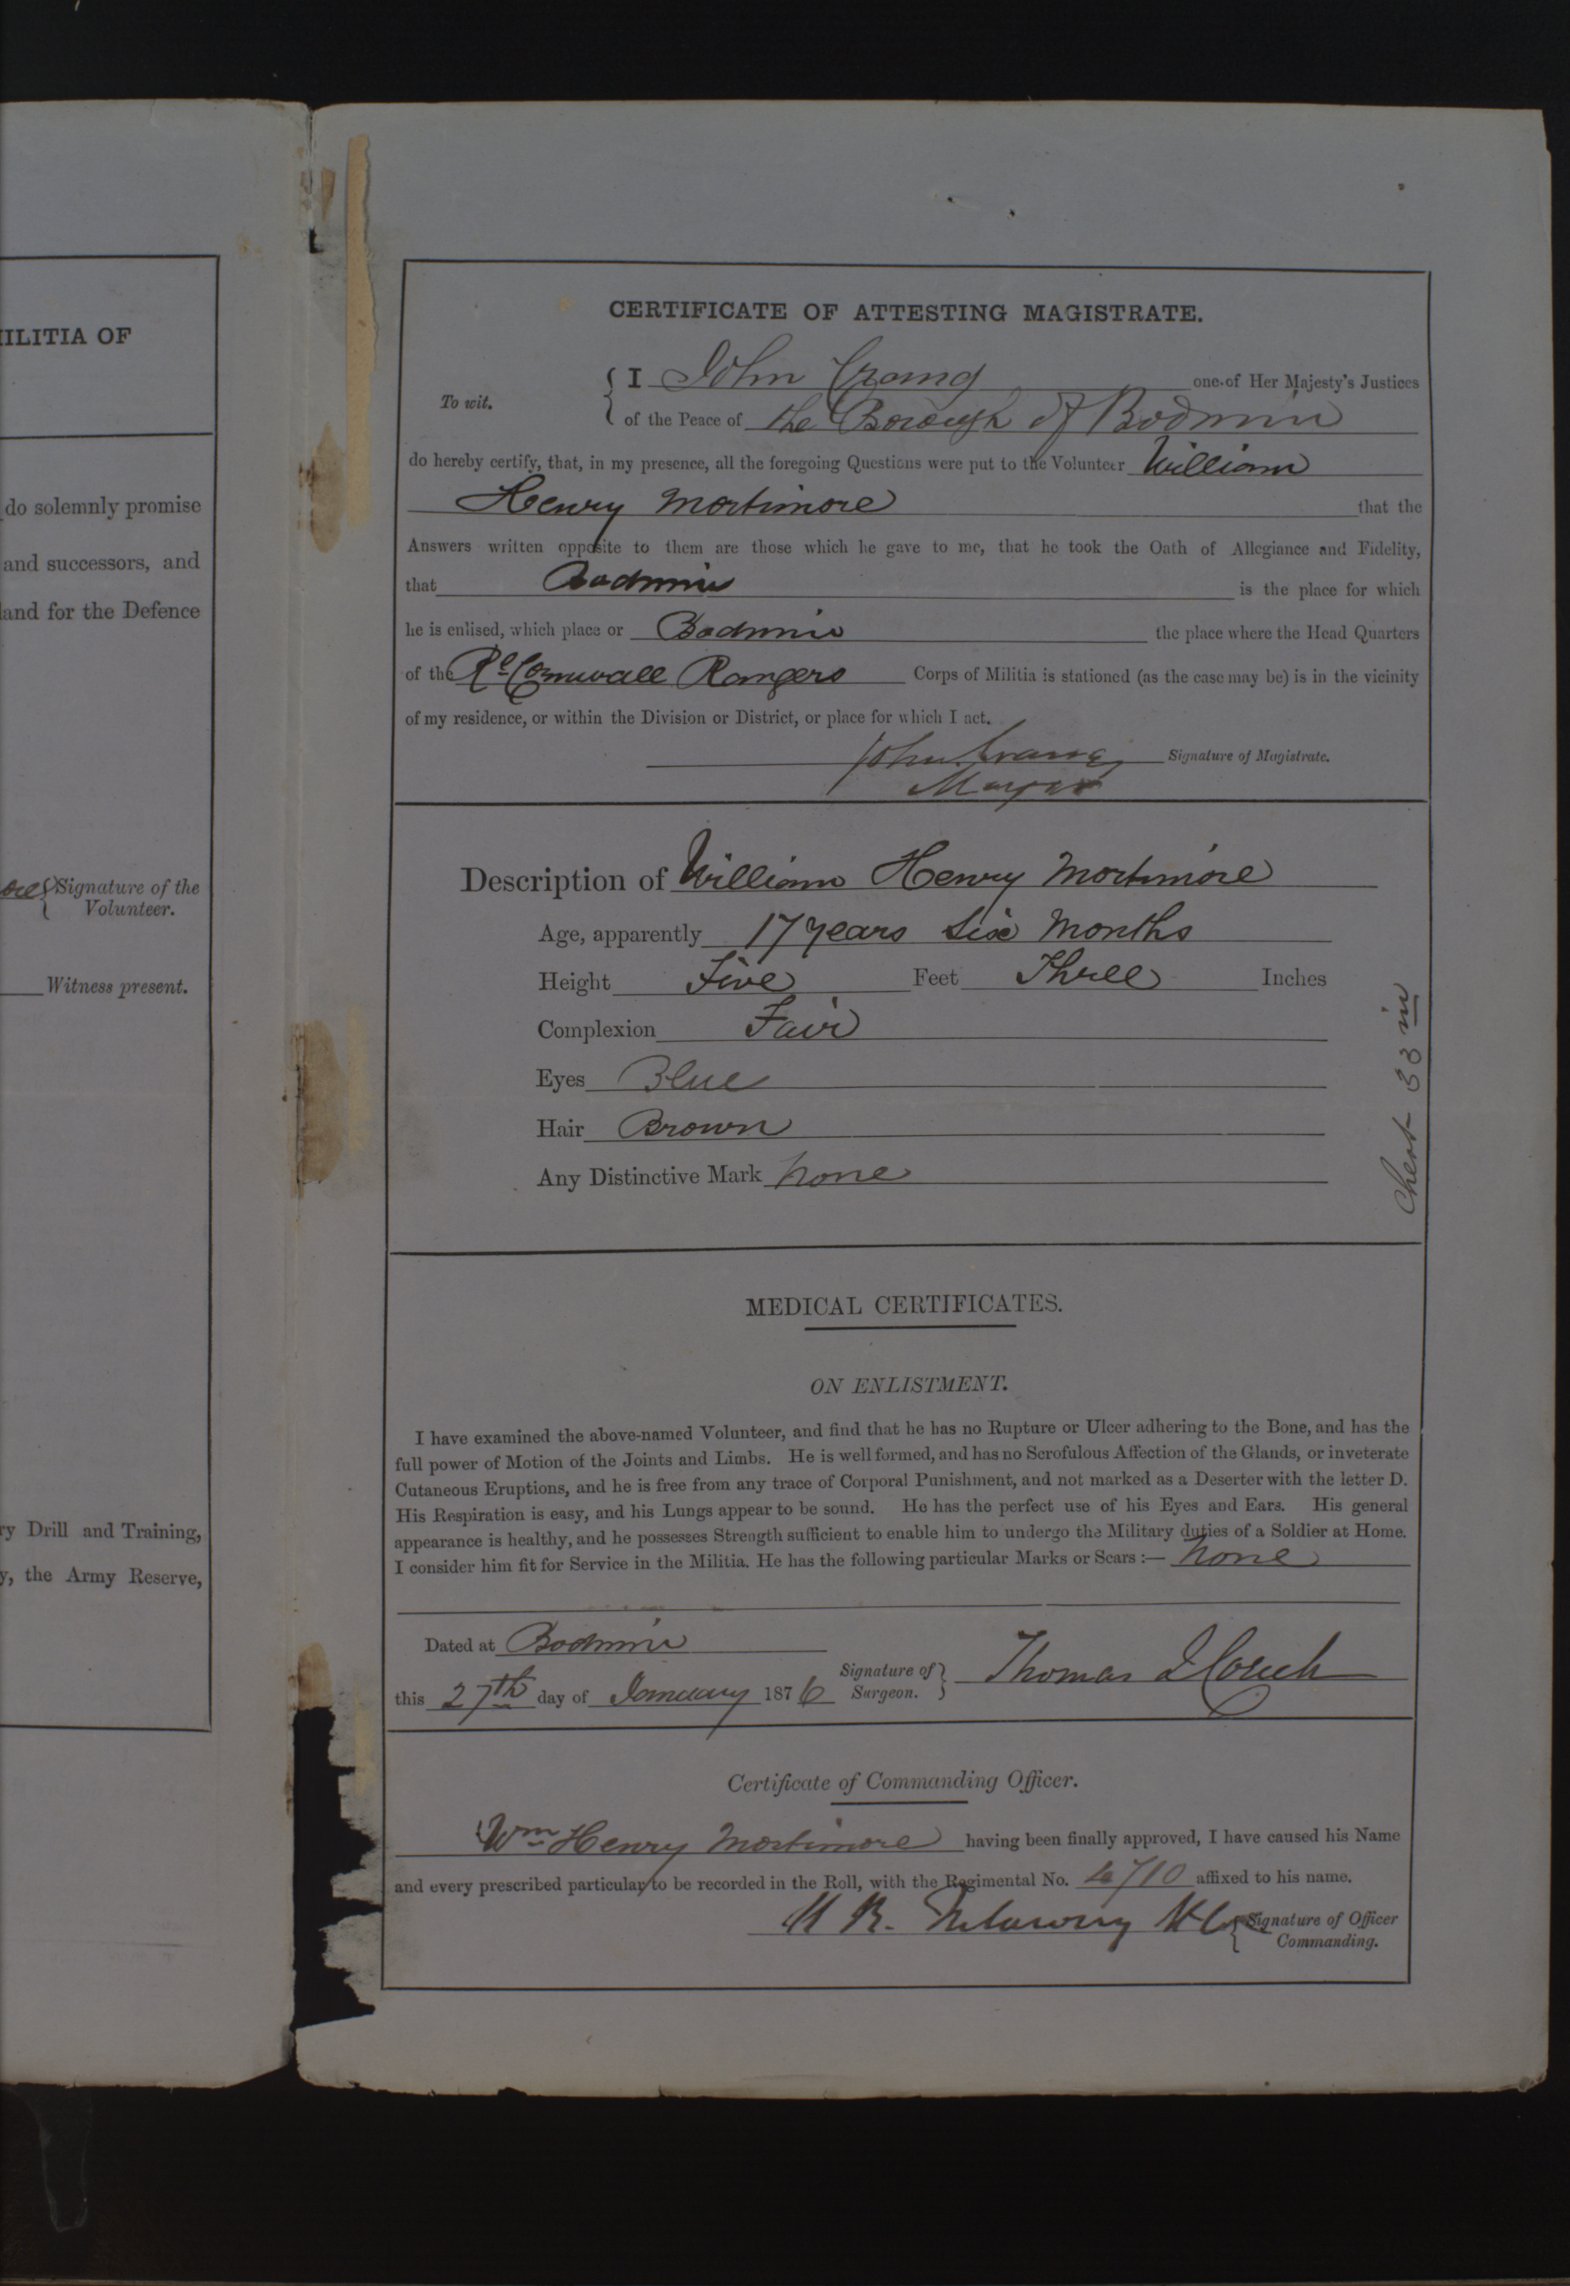 MILITIA OF
do solemnly promise
and successors, and
land for the Defence
Signature of the
Volunteer.
Witness present.
ry Drill and Training,
y, the Army Reserve,
CERTIFICATE OF ATTESTING MAGISTRATE.
To wit.
I John Crang one of Her Majesty's Justices
of the Peace of the Borough of Bodmin
do hereby certify, that, in my presence, all the foregoing Questions were put to the Volunteer William
Henry Mortimore that the
Answers written opposite to them are those which he gave to me, that he took the Oath of Allegiance and Fidelity,
that Bodmin is the place for which
he is enlised, which place or Bodmin the place where the Head Quarters
of the Rl Cornwall Rangers Corps of Militia is stationed (as the case may be) is in the vicinity
of my residence, or within the Division or District, or place for which I act.
John Crang Signature of Magistrate.
Mayor
Description of William Henry Mortimore
Age, apparently 17 years Six Months
Height Five Feet Three Inches
Complexion Fair
Eyes Blue
Hair Brown
Any Distinctive Mark None
Chest 33 in
MEDICAL CERTIFICATES.
ON ENLISTMENT.
I have examined the above-named Volunteer, and find that he has no Rupture or Ulcer adhering to the Bone, and has the
full power of Motion of the Joints and Limbs. He is well formed, and has no Scrofulous Affection of the Glands, or inveterate
Cutaneous Eruptions, and he is free from any trace of Corporal Punishment, and not marked as a Deserter with the letter D.
His Respiration is easy, and his Lungs appear to be sound. He has the perfect use of his Eyes and Ears. His general
appearance is healthy, and he possesses Strength sufficient to enable him to undergo the Military duties of a Soldier at Home.
I consider him fit for Service in the Militia. He has the following particular Marks or Scars :— None
Dated at Bodmin
this 27th day of January 1876
Signature of
Surgeon.
Thomas
Certificate of Commanding Officer.
Wm Henry Mortimore having been finally approved, I have caused his Name
and every prescribed particular, to be recorded in the Roll, with the Regimental No. 4710 affixed to his name.
Signature of Officer
Commanding.